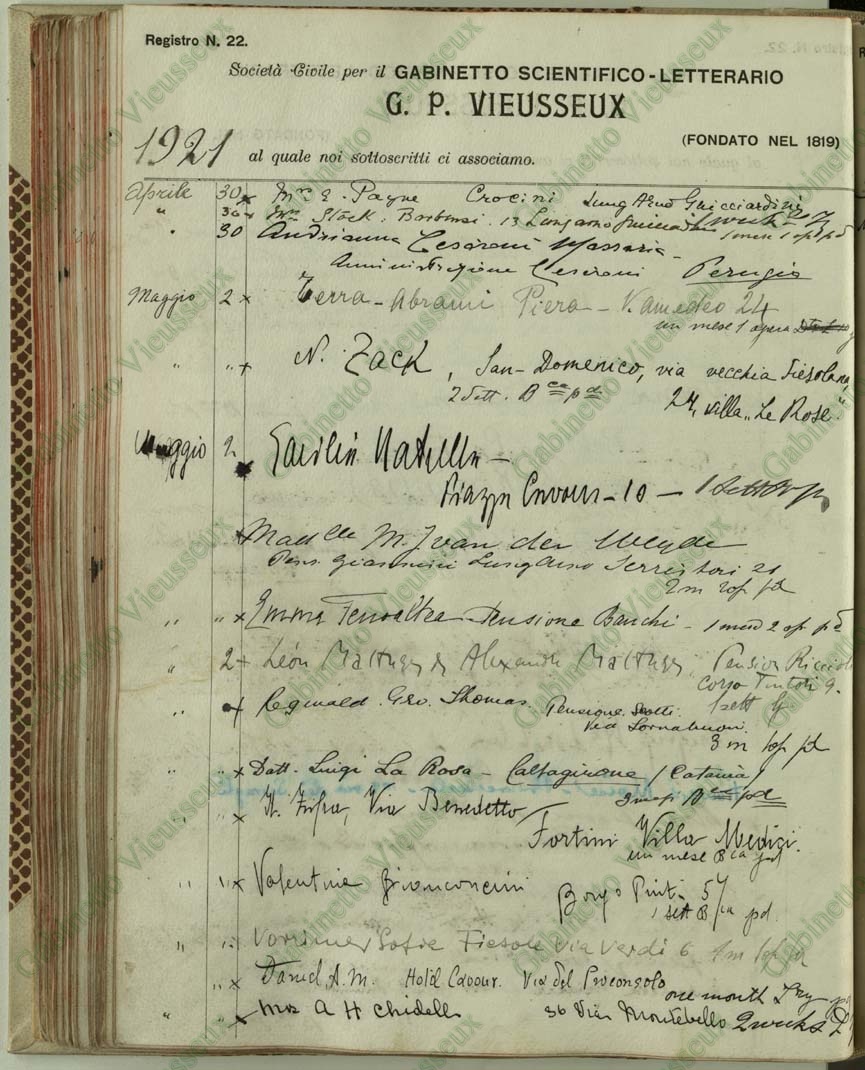 Registro N. 22.
Società Civile per il GABINETTO SCIENTIFICO-LETTERARIO
G. P. VIEUSSEUX
(FONDATO NEL 1819)
1921 al quale noi sottoscritti ci associamo.
Aprile 30 x Mrs E. Payne Crocini Lung'Arno Guicciardini
" 30 x Mrs Stack. Barbensi. 13 Lungarno
" 30 Andrianna Cesaroni Massaria - 1 mese 1 op pd
Amministrazione Cesaroni Perugia
Maggio 2 x Terra-Abrami Piera - V. amedeo 24
un mese 1 opera
" " x N. Zack, San-Domenico, via vecchia Fiesolana,
2 sett. Bca pd 24, villa "Le Rose".
Maggio 2
Piazza Cavour - 10 - 1
x Madlle M. J van der Weyde
Pens. Giannini Lungarno Serristori 21
2 m 2 op pd
" " x Emma Fenoaltea Pensione Banchi - 1 mese 2 op pd
" 2 x Léon Alexandre Pension Riccioli
Corso Tintori 9.
1 sett
" x Reginald. Geo. Thomas. Pensione Scotti.
Via Tornabuoni.
3 m 1 op pd
" " x Dott. Luigi La Rosa - Caltagirone (Catania)
3 mesi Bca pd
" x Via Benedetto
Fortini Villa Medici.
un mese Bca pd
" " x Valentina Bianconcini Borgo Pinti 57
1 sett Bca pd.
" " Sofie Fiesole Via Verdi 6 1 m 1 op pd
" x Daniel, A. M. Hotel Cavour. Via del Proconsolo
one month
" " x Mrs A H Chidell 36 Via Montebello 2 weeks